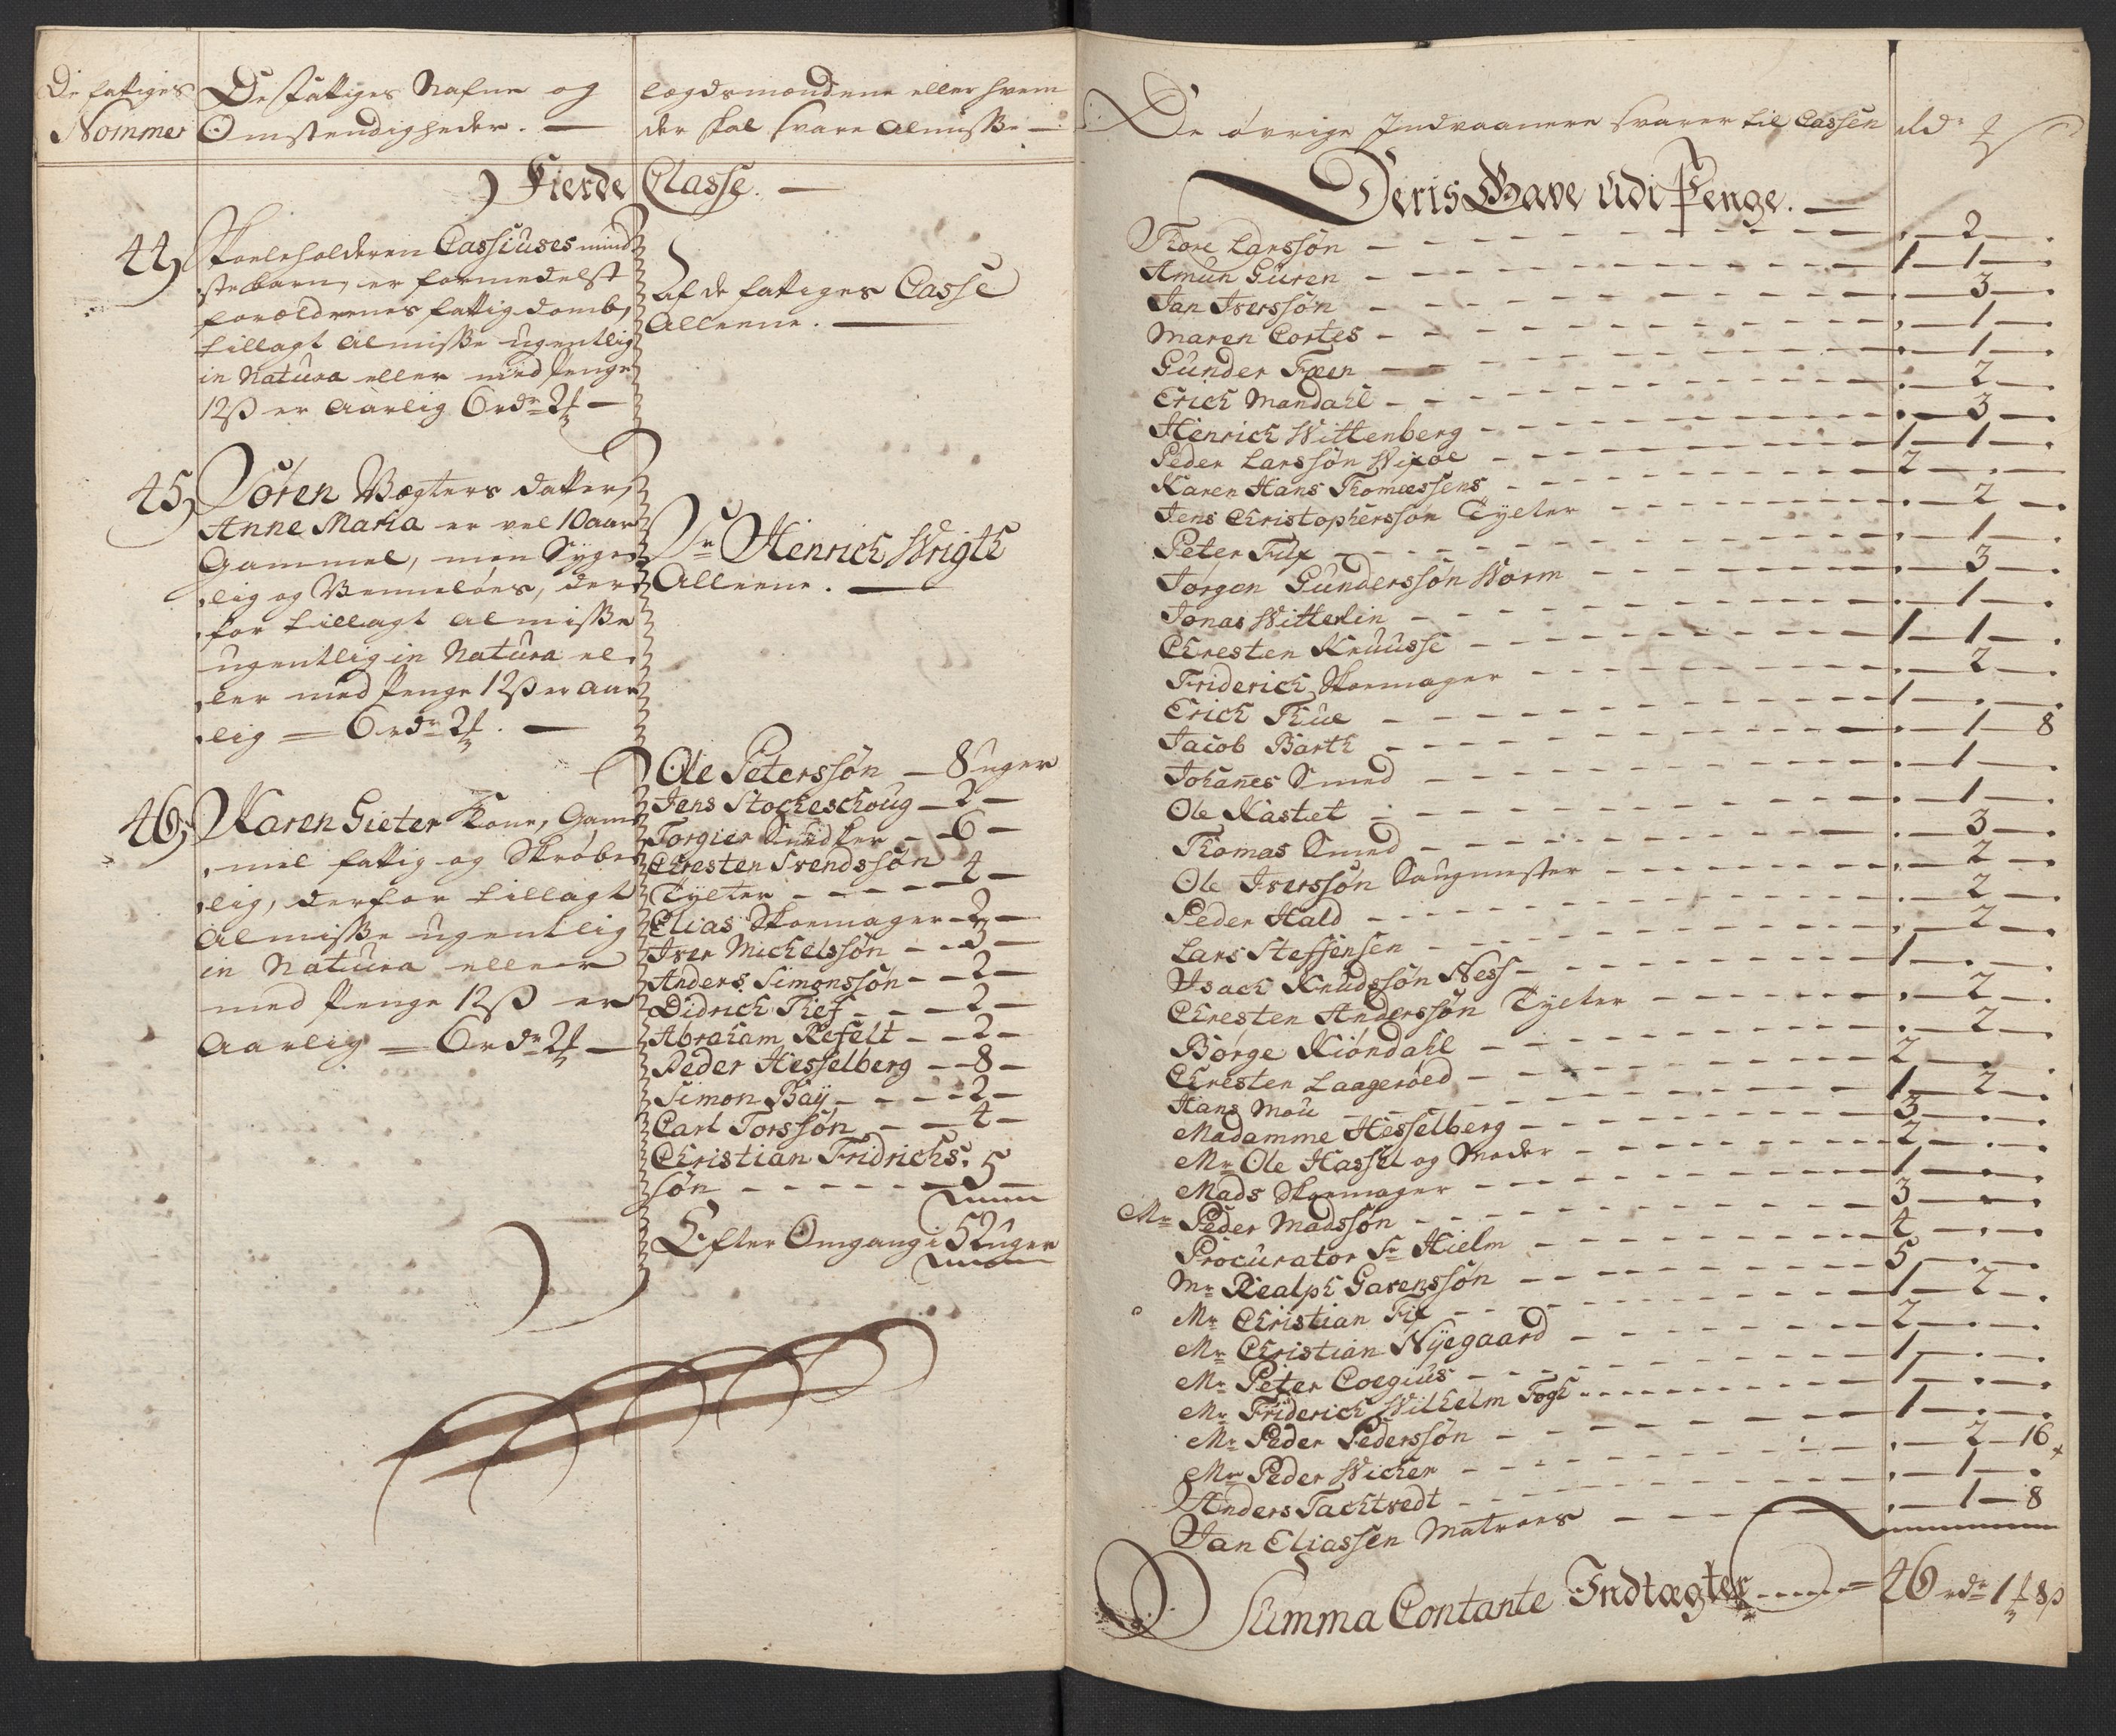 De fattiges
Nommer
De fattiges Nafne og
Omstendigheder. —
lægdsmændene eller hvem
der skal svare Almisse —
Fierde Classe. —
44, Skoeleholderen Cassiuses mind
ste barn, er formedelst
forældrenes fattigdomb,
tillagt Almisse ugentlig
in Natura eller med Penge
12ß er Aarlig 6 rdr 2
Af de fattiges Casse
Alleene. —
45, Søren Vægters datter,
Anne Maria er vel 10 aar
Gammel, men Syge
lig og Venneløes, der
for tillagt Almisse
ugentlig in Natura el
ler med Penge 12ß er Aar
lig = 6 rdr 2 . —
Sr Henrich Wrigth
Alleene. —
46, Karen Gieter Kone, Gam
mel fattig og Skrøbe
lig, derfor tillagt
Almisse ugentlig
in Natura eller
med Penge 12ß er
Aarlig = 6 rdr 2 —
Ole Peterssøn — 8 uger
Jens Stockeschoug — 2 —
Torgier Snedker — 6 —
Chresten Svendssøn
Tyeter - - - - 4 —
Elias Skoemager — 2 —
Iver Michelssøn - - 3 —
Anders Simonssøn - - 2 —
Didrich Tief - - - 2 —
Abraham Refelt - - 2 —
Peder Hesselberg - - 8 —
Simon Baÿ - - - - 2 —
Carl Torssøn - - 4 —
Christian Fridrichs
søn - - - - - - 5 —
Efter Omgang i 52 uger
De øvrige Indvaanere svarer til Cassen rdr
Deris Gave udi Penge. —
Thore Larssøn - - - . — 2 — .
Amun Guren - - - 1 — 1 — .
Jan Iverssøn - - - . — 3 — .
Maren Cortes - - - . — 1 — .
Gunder Fxen - - - . — 1 — .
Erich Mandahl - - - . — 2 — .
Henrich Wittenberg - - - . — 3 — .
Peder Larssøn Wixøe - - - 1 — 1 — .
Karen Hans Thomessens - - - 2 — . —
Jens Christopherssøn Tyeter - - - . — 2 — .
Peter Fux - - - . — 1 — .
Jørgen Gunderssøn Worm - - - . — 3 — .
Jonas Witterlin - - - . — 1 — .
Chresten Knuusse - - - 1 — 1 — .
Friderich Skoemager - - - . — 2 — .
Erich Thue - - - 1 — . — .
Jacob Barth - - - . — 1 — 8
Johanes Smed - - - . — 1 — .
Ole Kastet - - - . — 1 — .
Thomas Smed - - - . — 3 — .
Ole Iverssøn Saugmester - - - . — 2 — .
Peder Hald - - - . — 2 — .
Lars Steffensen - - - . — 2 — .
Isach Knudssøn Ness - - - 1 — . — .
Chresten Anderssøn Tyeter - - - . — 2 — .
Børge Kiøndahl - - - . — 2 — .
Chresten Laagerøed - - - 2 — . — .
Hans Mou - - - 1 — 2 — .
Madamme Hesselberg - - - 3 — . — .
Mr Ole Hassel og Moder - - - 2 — . — .
Mads Skoemager - - - 1 — . — .
Mr Peder Madssøn - - - 3 — . — .
Procurator Sr Hielm - - - 4 — . — .
Mr Realph Garenssøn - - - 5 — . — .
Mr Christian Fix - - - 1 — 2 — .
Mr Christian Nÿegaard - - - 2 — . — .
Mr Peter Coegius - - - 1 — . — .
Mr Friderich Wilhelm Fogh - - - 1 — . — .
Mr Peder Pederssøn - - - 1 — . — .
Mr Peder Wicker - - - . — 2 — 16
Anders Tachtvedt - - - . — 1 — .
Jan Eliassen Matroes - - - . — 1 — 8
Summa Contante Indtægter - - - = 46 rdr 1 8ß